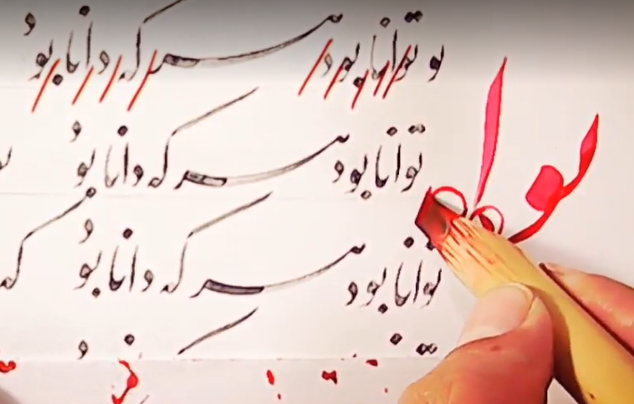 توانا بود هر که دانا بود
توانا بود هر که دانا بود
توانا بود هر که دانا بود که